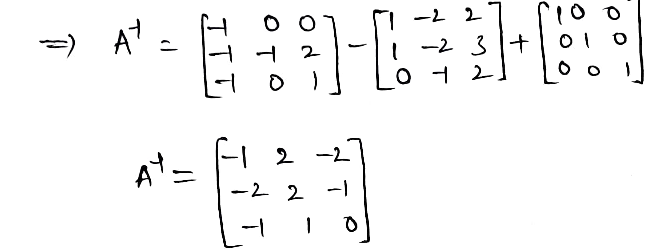 ⇒ A⁻¹ = [-1 0 0; -1 -1 2; -1 0 1] - [1 -2 2; 1 -2 3; 0 -1 2] + [1 0 0; 0 1 0; 0 0 1]
A⁻¹ = [-1 2 -2; -2 2 -1; -1 1 0]